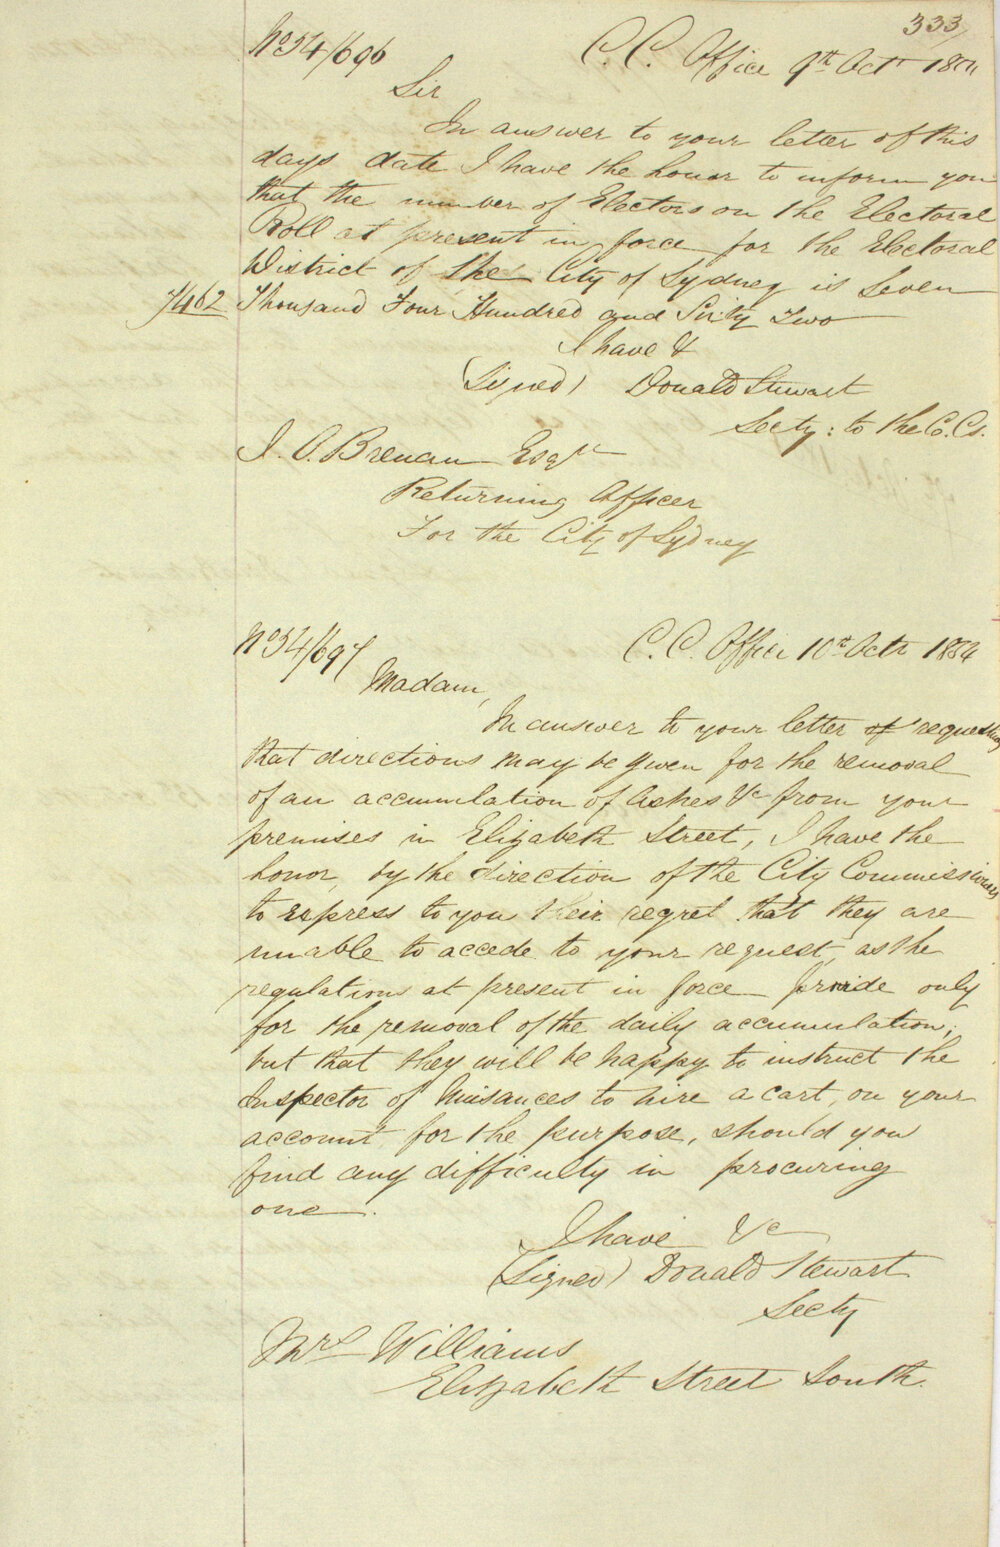 333
No 54/696
C. C. Office 9th Octr 1854
Sir
In answer to your letter of this
days date I have the honor to inform you
that the number of Electors on the Electoral
Roll at present in force for the Electoral
District of the City of Sydney is Seven
7462 Thousand Four Hundred and Sixty Two
I have &
(Signed) Donald Stewart
Secty: to the C. Cs.
J. O. Brenan Esqr
Returning Officer
For the City of Sydney
No 54/697
C. C. Office 10th Octr 1854
Madam,
In answer to your letter of requesting
that directions may be given for the removal
of an accumulation of Ashes &c from your
premises in Elizabeth Street, I have the
honor, by the direction of the City Commissioners
to express to you their regret that they are
unable to accede to your request, as the
regulations at present in force provide only
for the removal of the daily accumulation;
but that they will be happy to instruct the
Inspector of Nuisances to hire a cart, on your
account for the purpose, should you
find any difficulty in procuring
one.
I have &c
(Signed) Donald Stewart
Secty
Mrs Williams
Elizabeth Street South.